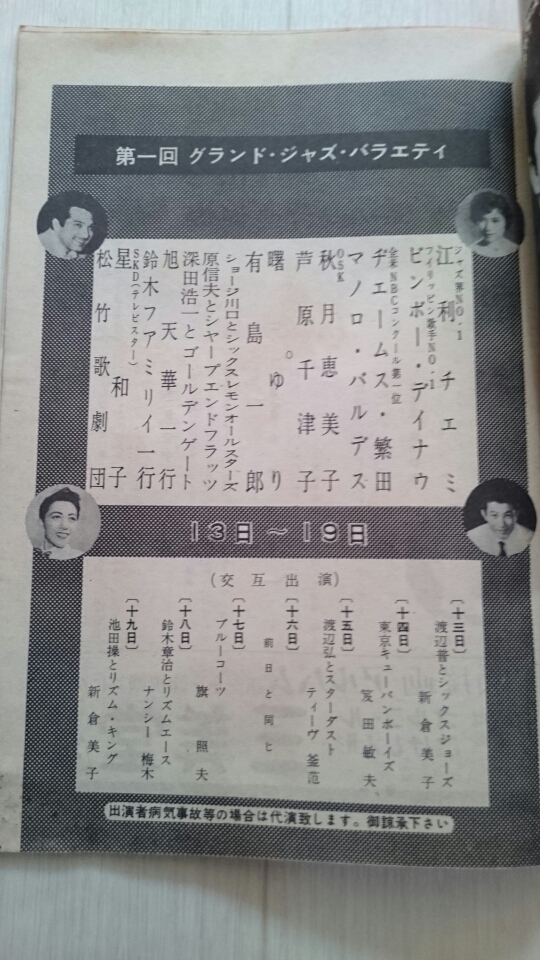 第一回 グランド・ジャズ・バラエティ
ジャズ界NO.1
江利チエミ
フィリッピン歌手NO.1
ビンボー・デイナウ
全米NBCコンクール第一位
ヂェームス・繁田
マノロ・バルデス
OSK
秋月恵美子
芦原千津子
曙ゆり
有島一郎
ショージ川口とシックスレモンオールスターズ
原信夫とシャープエンドフラッツ
深田浩一とゴールデンゲート
旭天華一行
鈴木フアミリイ一行
SKD(テレビスター)
星和子
松竹歌劇団
13日～19日
(交互出演)
〔十三日〕
渡辺晋とシックスジョーズ
新倉美子
〔十四日〕
東京キューバンボーイズ
笈田敏夫
〔十五日〕
渡辺弘とスターダスト
ティーヴ釜范
〔十六日〕
前日と同じ
〔十七日〕
ブルーコーツ
旗照夫
〔十八日〕
鈴木章治とリズムエース
ナンシー梅木
〔十九日〕
池田操とリズム・キング
新倉美子
出演者病気事故等の場合は代演致します。御諒承下さい